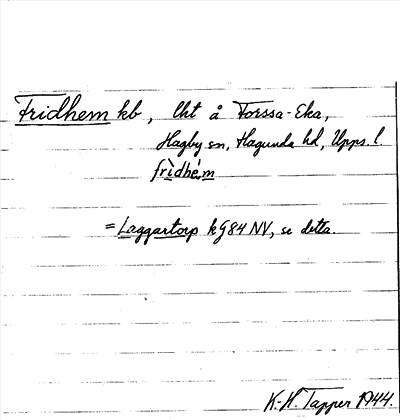 Fridhem kb, lht å Forssa-Eka,
Hagby sn, Hagunda hd, Upps. l.
frìdhé.m
= Laggartorp kG84 NV, se detta.
K.-H. Tapper 1944.